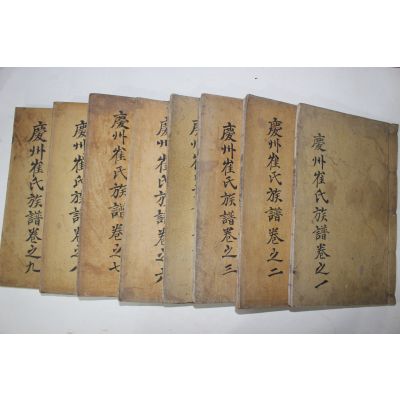 慶州崔氏族譜卷之一
慶州崔氏族譜卷之二
慶州崔氏族譜卷之三
慶州
慶州崔氏族譜卷之六
慶州崔氏族譜卷之七
慶州崔氏族譜卷之八
慶州崔氏族譜卷之九